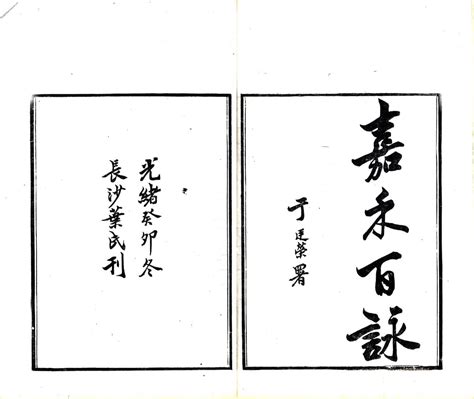 嘉禾百詠
于廷榮署
光緒癸卯冬
長沙葉氏刊